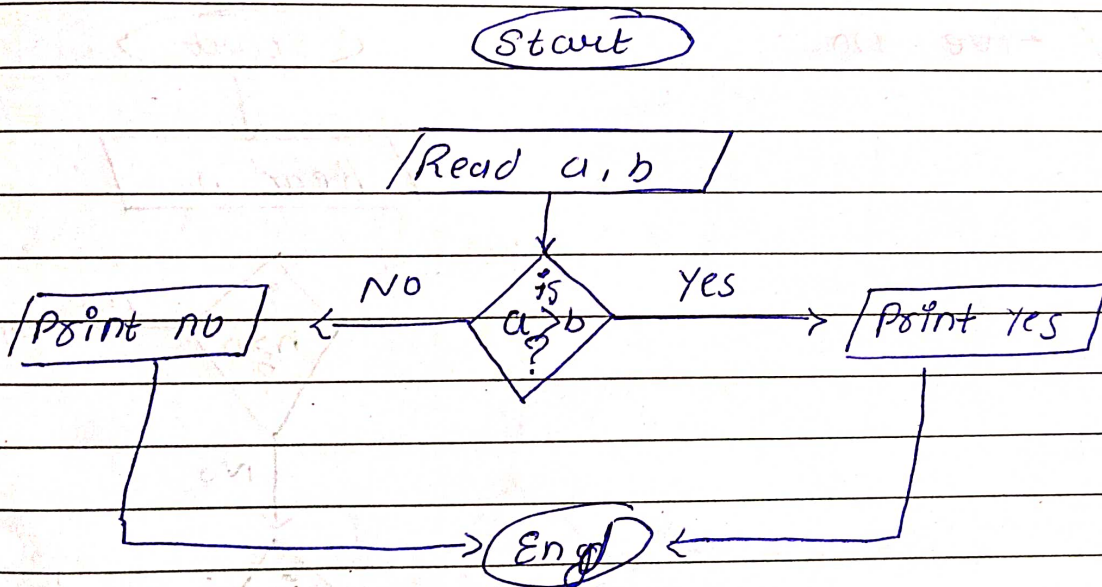 Start
Read a, b
is
NO
Yes
Print no
a>b
Print Yes
?
End